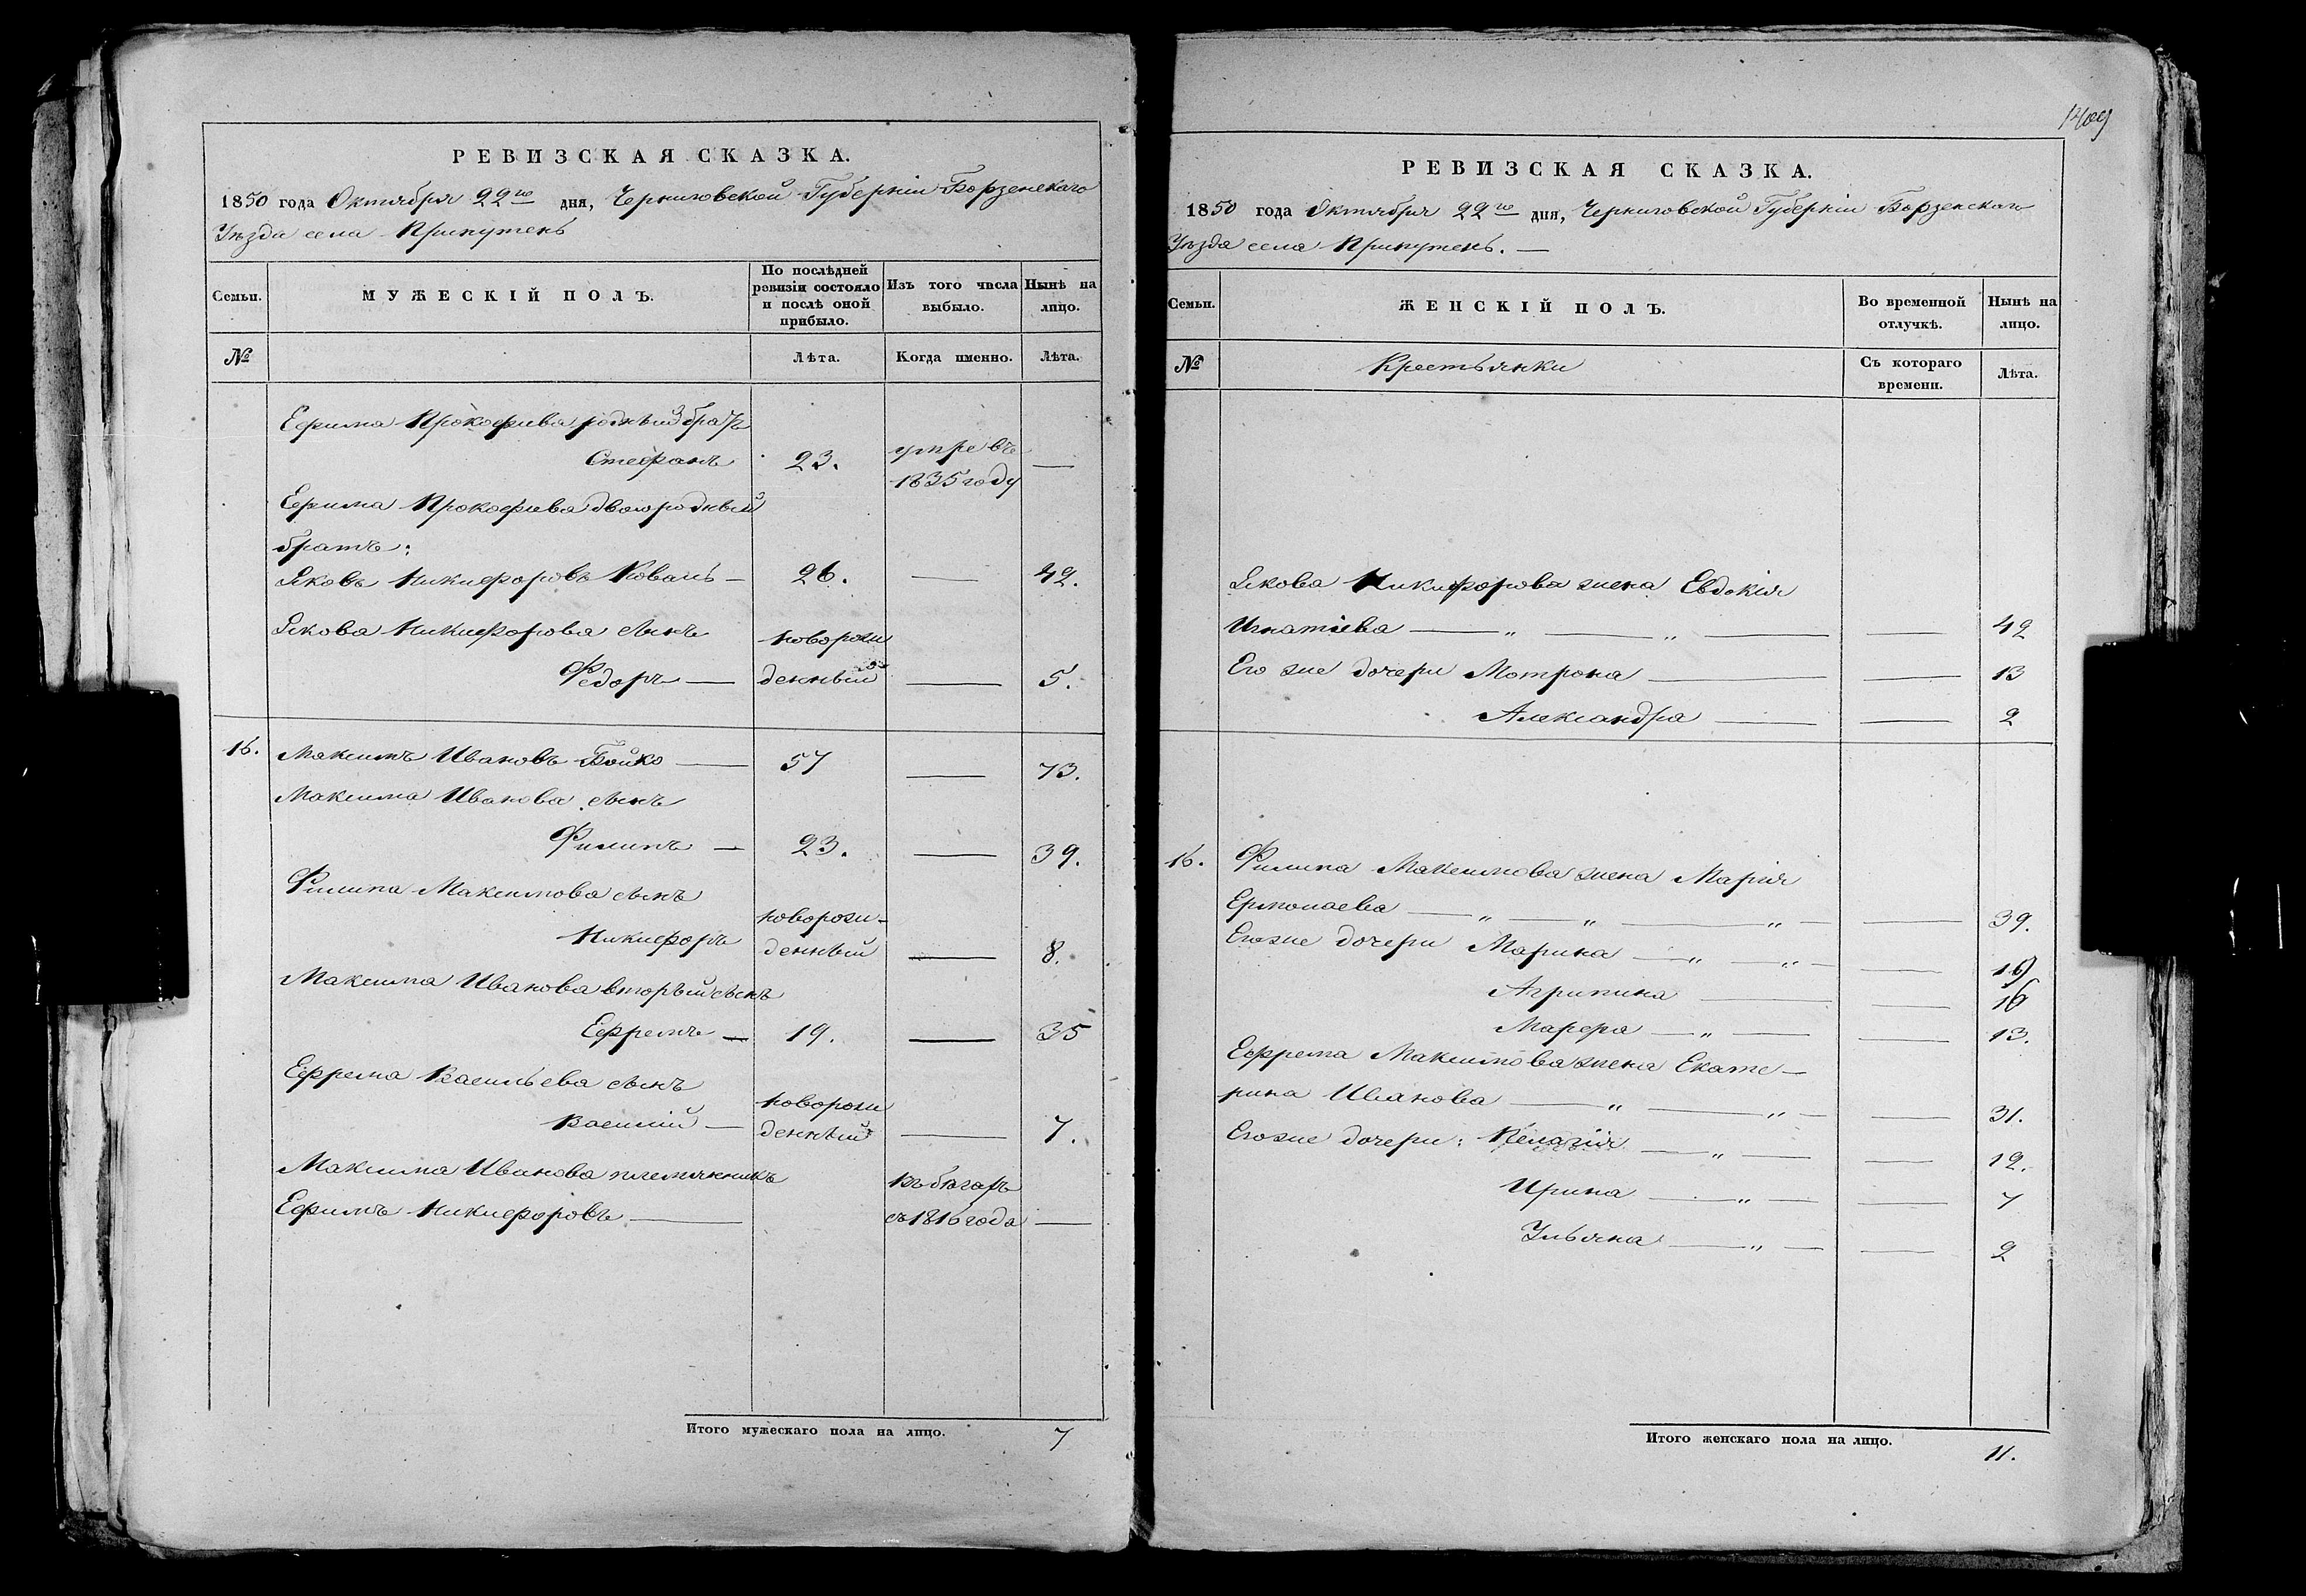 РЕВИЗСКАЯ СКАЗКА.
1850 года Октября 22го дня, Черниговской Губерніи Борзенскаго
Уѣзда села Припутень
Семьи.
МУЖЕСКІЙ ПОЛЪ.
По послѣдней
ревизіи состояло
и послѣ оной
прибыло.
Изъ того числа
выбыло.
Нынѣ на
лицо.
№
Лѣта.
Когда именно.
Лѣта.
Ефима Прокофива родный братъ
Стефанъ 23. умре въ —
1835 году
Ефима Прокофива двоюродный
братъ:
Яковъ Никифоровъ Коваль — 26. — 42.
Якова Никифорова сынъ новорож
Федоръ — денный — 5.
16. Максимъ Ивановъ Бойко — 57 — 73.
Максима Иванова сынъ
Филипъ — 23. — 39.
Филипа Максимова сынъ
новорож-
Никифоръ денный — 8.
Максима Иванова вторый сынъ
Ефремъ — 19. — 35
Ефрема Васильева сынъ
новорож
Василій — денный — 7.
Максима Иванова племянникъ въ бѣгахъ
Ефимъ Никифоровъ — съ 1816 года —
Итого мужескаго пола на лицо. 7
1409
РЕВИЗСКАЯ СКАЗКА.
1850 года Октября 22го дня, Черниговской Губерніи Борзенскаго
Уѣзда села Припутень. —
Семьи.
ЖЕНСКІЙ ПОЛЪ.
Во временной
отлучкѣ.
Нынѣ на
лицо.
№
Крестьянки
Съ котораго
времени.
Лѣта.
Якова Никифорова жена Евдокія
Игнатіева — „ — „ — — 42
Его же дочери Мотрона — — 13
Александра — — 2
16. Филипа Максимова жена Марія
Ермолаева — „ — „ — „ — — 39.
Его же дочери Марина — „ — „ — — 19
Агрипина — — 16
Марфа — „ — — 13.
Ефрема Максимова жена Екате—
рина Иванова — „ — „ — — 31.
Его же дочери: Пелагія — „ — — 12.
Ирина — „ — — 7
Ульяна — „ — — 2
Итого женскаго пола на лицо. 11.